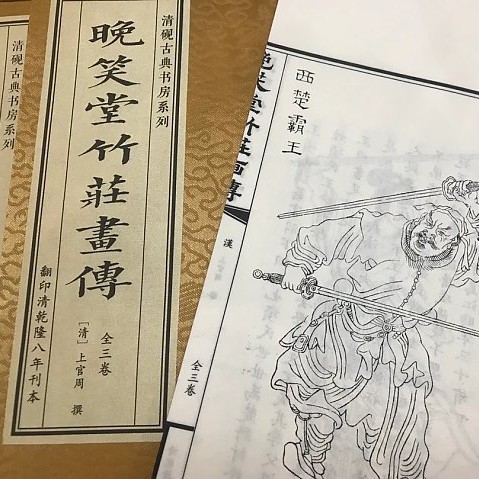 清砚古典书房系列
晚笑堂竹莊畫傳
全三卷
［清］上官周 撰
翻印清乾隆八年刊本
清砚古典书房系列
西楚霸王
晚笑堂竹莊画傳
漢
全三卷